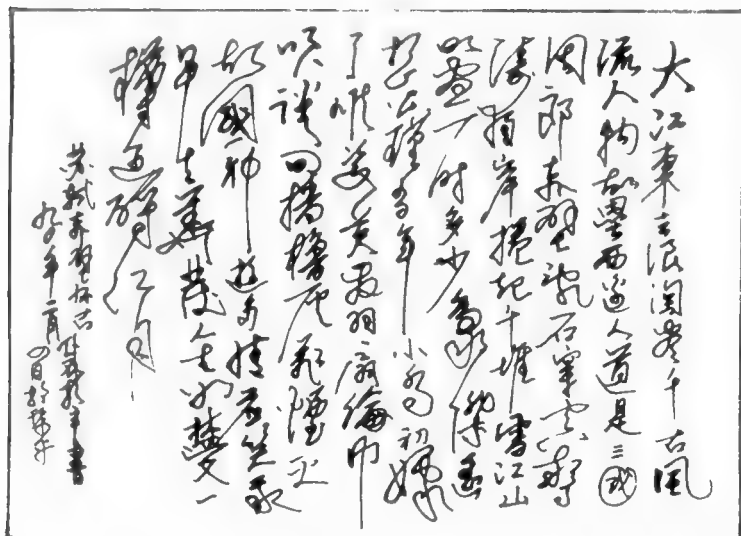 大江東去浪淘盡千古風
流人物故壘西邊人道是三國
周郎赤壁亂石穿空驚
濤拍岸捲起千堆雪江山
如畫一時多少豪傑遙
想公瑾當年小喬初嫁
了雄姿英發羽扇綸巾
笑談间檣櫓灰飛煙滅
故國神遊多情應笑我
早生華髮人生如夢一
樽還酹江月
蘇軾赤壁懷古 書
年二月